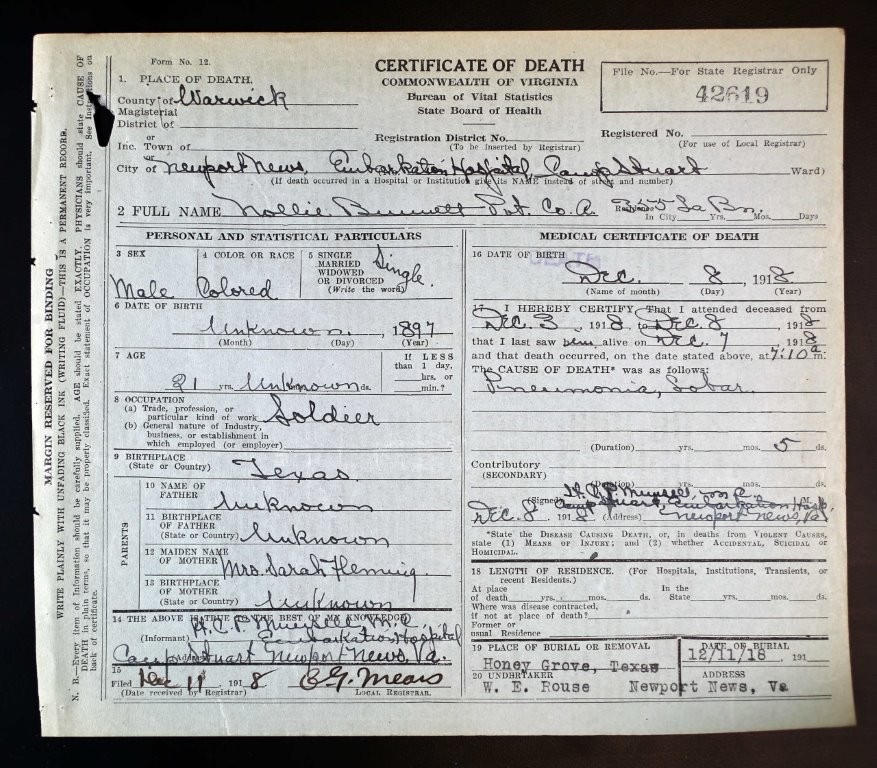 Form No. 12.
CERTIFICATE OF DEATH
COMMONWEALTH OF VIRGINIA
Bureau of Vital Statistics
State Board of Health
File No.—For State Registrar Only
42619
1. PLACE OF DEATH.
County of Warwick
Magisterial
District of
or
Inc. Town of
or
City of Newport News, Embarkation Hospital, Camp Stuart Ward)
Registration District No.
(To be inserted by Registrar)
Registered No.
(For use of Local Registrar)
(If death occurred in a Hospital or Institution give its NAME instead of street and number)
2 FULL NAME Nollie Pvt. Co. A.
In City Yrs. Mos. Days
PERSONAL AND STATISTICAL PARTICULARS
3 SEX
Male
4 COLOR OR RACE
Colored
5 SINGLE
MARRIED
WIDOWED
OR DIVORCED
(Write the word)
Single
6 DATE OF BIRTH
Unknown. 1897
(Month) (Day) (Year)
7 AGE
21 yrs. Unknown ds.
If LESS
than 1 day,
hrs. or
min.?
8 OCCUPATION
(a) Trade, profession, or
particular kind of work Soldier
(b) General nature of Industry,
business, or establishment in
which employed (or employer)
9 BIRTHPLACE
(State or Country) Texas.
PARENTS
10 NAME OF
FATHER Unknown
11 BIRTHPLACE
OF FATHER
(State or Country) Unknown
12 MAIDEN NAME
OF MOTHER Mrs. Sarah Fleming.
13 BIRTHPLACE
OF MOTHER
(State or Country) Unknown
14 THE ABOVE IS TRUE TO THE BEST OF MY KNOWLEDGE
(Informant) Embarkation Hospital
(Address) Camp Stuart Newport News, Va.
15
Filed Dec 11 1918 C G. Mears
(Date received by Registrar) LOCAL REGISTRAR.
MEDICAL CERTIFICATE OF DEATH
16 DATE OF BIRTH
Dec. 8 1918
(Name of month) (Day) (Year)
17 I HEREBY CERTIFY, That I attended deceased from
Dec. 3, 1918, to Dec. 8, 1918
that I last saw him alive on Dec. 7 1918
and that death occurred, on the date stated above, at 7:10 a m.
The CAUSE OF DEATH* was as follows:
Pneumonia, Lobar.
(Duration) yrs. mos. 5 ds.
Contributory
(SECONDARY)
(Duration) yrs. mos. ds.
(Signed) M.
Camp Stuart, Embarkation Hosp.
Dec. 8 1918 (Address) Newport News, Va
*State the DISEASE CAUSING DEATH, or, in deaths from VIOLENT CAUSES,
state (1) MEANS OF INJURY; and (2) whether ACCIDENTAL, SUICIDAL OR
HOMICIDAL.
18 LENGTH OF RESIDENCE. (For Hospitals, Institutions, Transients, or
recent Residents.)
At place In the
of death yrs. mos. ds. State yrs. mos. ds.
Where was disease contracted,
if not at place of death?
Former or
usual Residence
19 PLACE OF BURIAL OR REMOVAL
Honey Grove, Texas
DATE OF BURIAL
12/11/18 , 191
20 UNDERTAKER
W. E. Rouse
ADDRESS
Newport News, Va
MARGIN RESERVED FOR BINDING
WRITE PLAINLY WITH UNFADING BLACK INK (WRITING FLUID)—THIS IS A PERMANENT RECORD.
N. B.—Every item of Information should be carefully supplied. AGE should be stated EXACTLY. PHYSICIANS should state CAUSE OF
DEATH in plain terms, so that it may be properly classified. Exact statement of OCCUPATION is very important. See Instructions on
back of certificate.